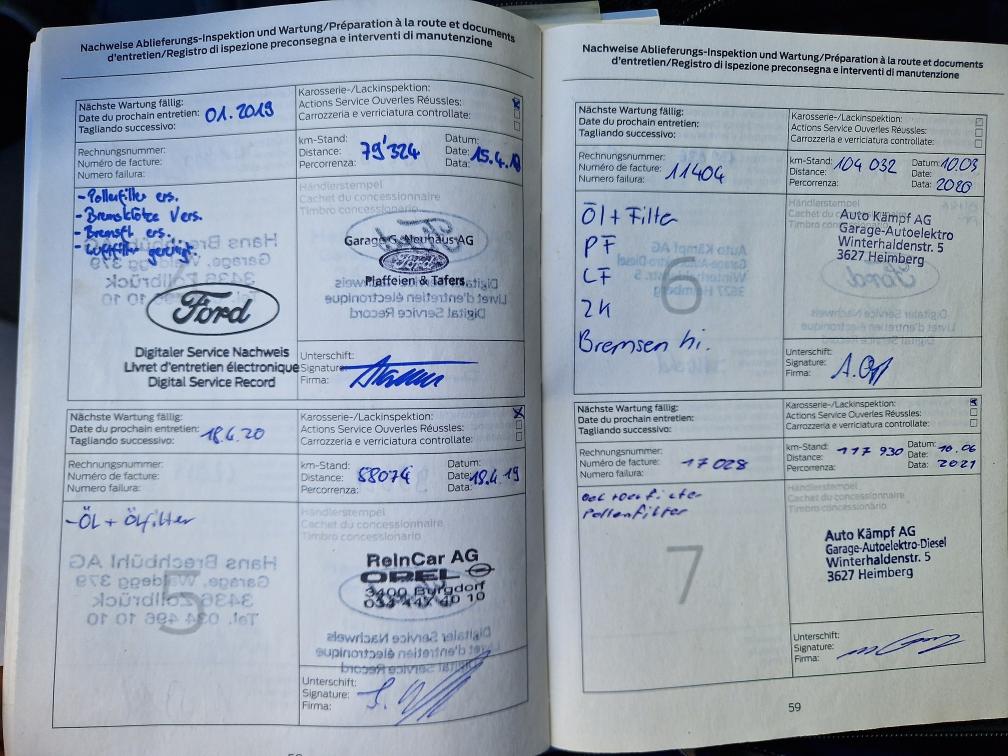 Nachweise Ablieferungs-Inspektion und Wartung/Préparation à la route et documents
d'entretien/Registro di ispezione preconsegna e interventi di manutenzione
Nächste Wartung fällig:
Date du prochain entretien: 01.2019
Tagliando successivo:
Karosserie-/Lackinspektion:
Actions Service Ouverles Réussles:
Carrozzeria e verriciatura controllate:
Rechnungsnummer:
Numéro de facture:
Numero failura:
km-Stand:
Distance: 79'324
Percorrenza:
Datum:
Date: 15.4.18
Data:
- Pollenfilter ers.
- Bremsklötze Vers.
- Bremsfl. ers.
- Luftfilter
Händlerstempel
Cachet du concessionnaire
Timbro concessionario
Garage G. Neuhaus AG
Plaffeien & Tafers
Ford
Digitaler Service Nachweis
Livret d'entretien électronique
Digital Service Record
Unterschift:
Signature:
Firma:
Nächste Wartung fällig:
Date du prochain entretien: 18.4.20
Tagliando successivo:
Karosserie-/Lackinspektion:
Actions Service Ouverles Réussles:
Carrozzeria e verriciatura controllate:
Rechnungsnummer:
Numéro de facture:
Numero failura:
km-Stand:
Distance: 88074
Percorrenza:
Datum:
Date:
Data: 18.4.19
- ÖL + Ölfilter
Händlerstempel
Cachet du concessionnaire
Timbro concessionario
ReinCar AG
OPEL
3400 Burgdorf
034 447 40 10
5
Unterschift:
Signature:
Firma:
Nachweise Ablieferungs-Inspektion und Wartung/Préparation à la route et documents
d'entretien/Registro di ispezione preconsegna e interventi di manutenzione
Nächste Wartung fällig:
Date du prochain entretien:
Tagliando successivo:
Karosserie-/Lackinspektion:
Actions Service Ouverles Réussles:
Carrozzeria e verriciatura controllate:
Rechnungsnummer:
Numéro de facture: 11404
Numero failura:
km-Stand:
Distance: 104 032
Percorrenza:
Datum: 10.03
Date:
Data: 2020
Öl + Filter
PF
LF
ZK
Bremsen hi.
6
Händlerstempel
Cachet du concessionnaire
Timbro concessionario
Auto Kämpf AG
Garage-Autoelektro
Winterhaldenstr. 5
3627 Heimberg
Unterschift:
Signature:
Firma:
Nächste Wartung fällig:
Date du prochain entretien:
Tagliando successivo:
Karosserie-/Lackinspektion:
Actions Service Ouverles Réussles:
Carrozzeria e verriciatura controllate:
Rechnungsnummer:
Numéro de facture: 17028
Numero failura:
km-Stand:
Distance: 117 930
Percorrenza:
Datum: 10.06
Date:
Data: 2021
Oel + Oelfilter
Pollenfilter
7
Händlerstempel
Cachet du concessionnaire
Timbro concessionario
Auto Kämpf AG
Garage-Autoelektro-Diesel
Winterhaldenstr. 5
3627 Heimberg
Unterschift:
Signature:
Firma:
59